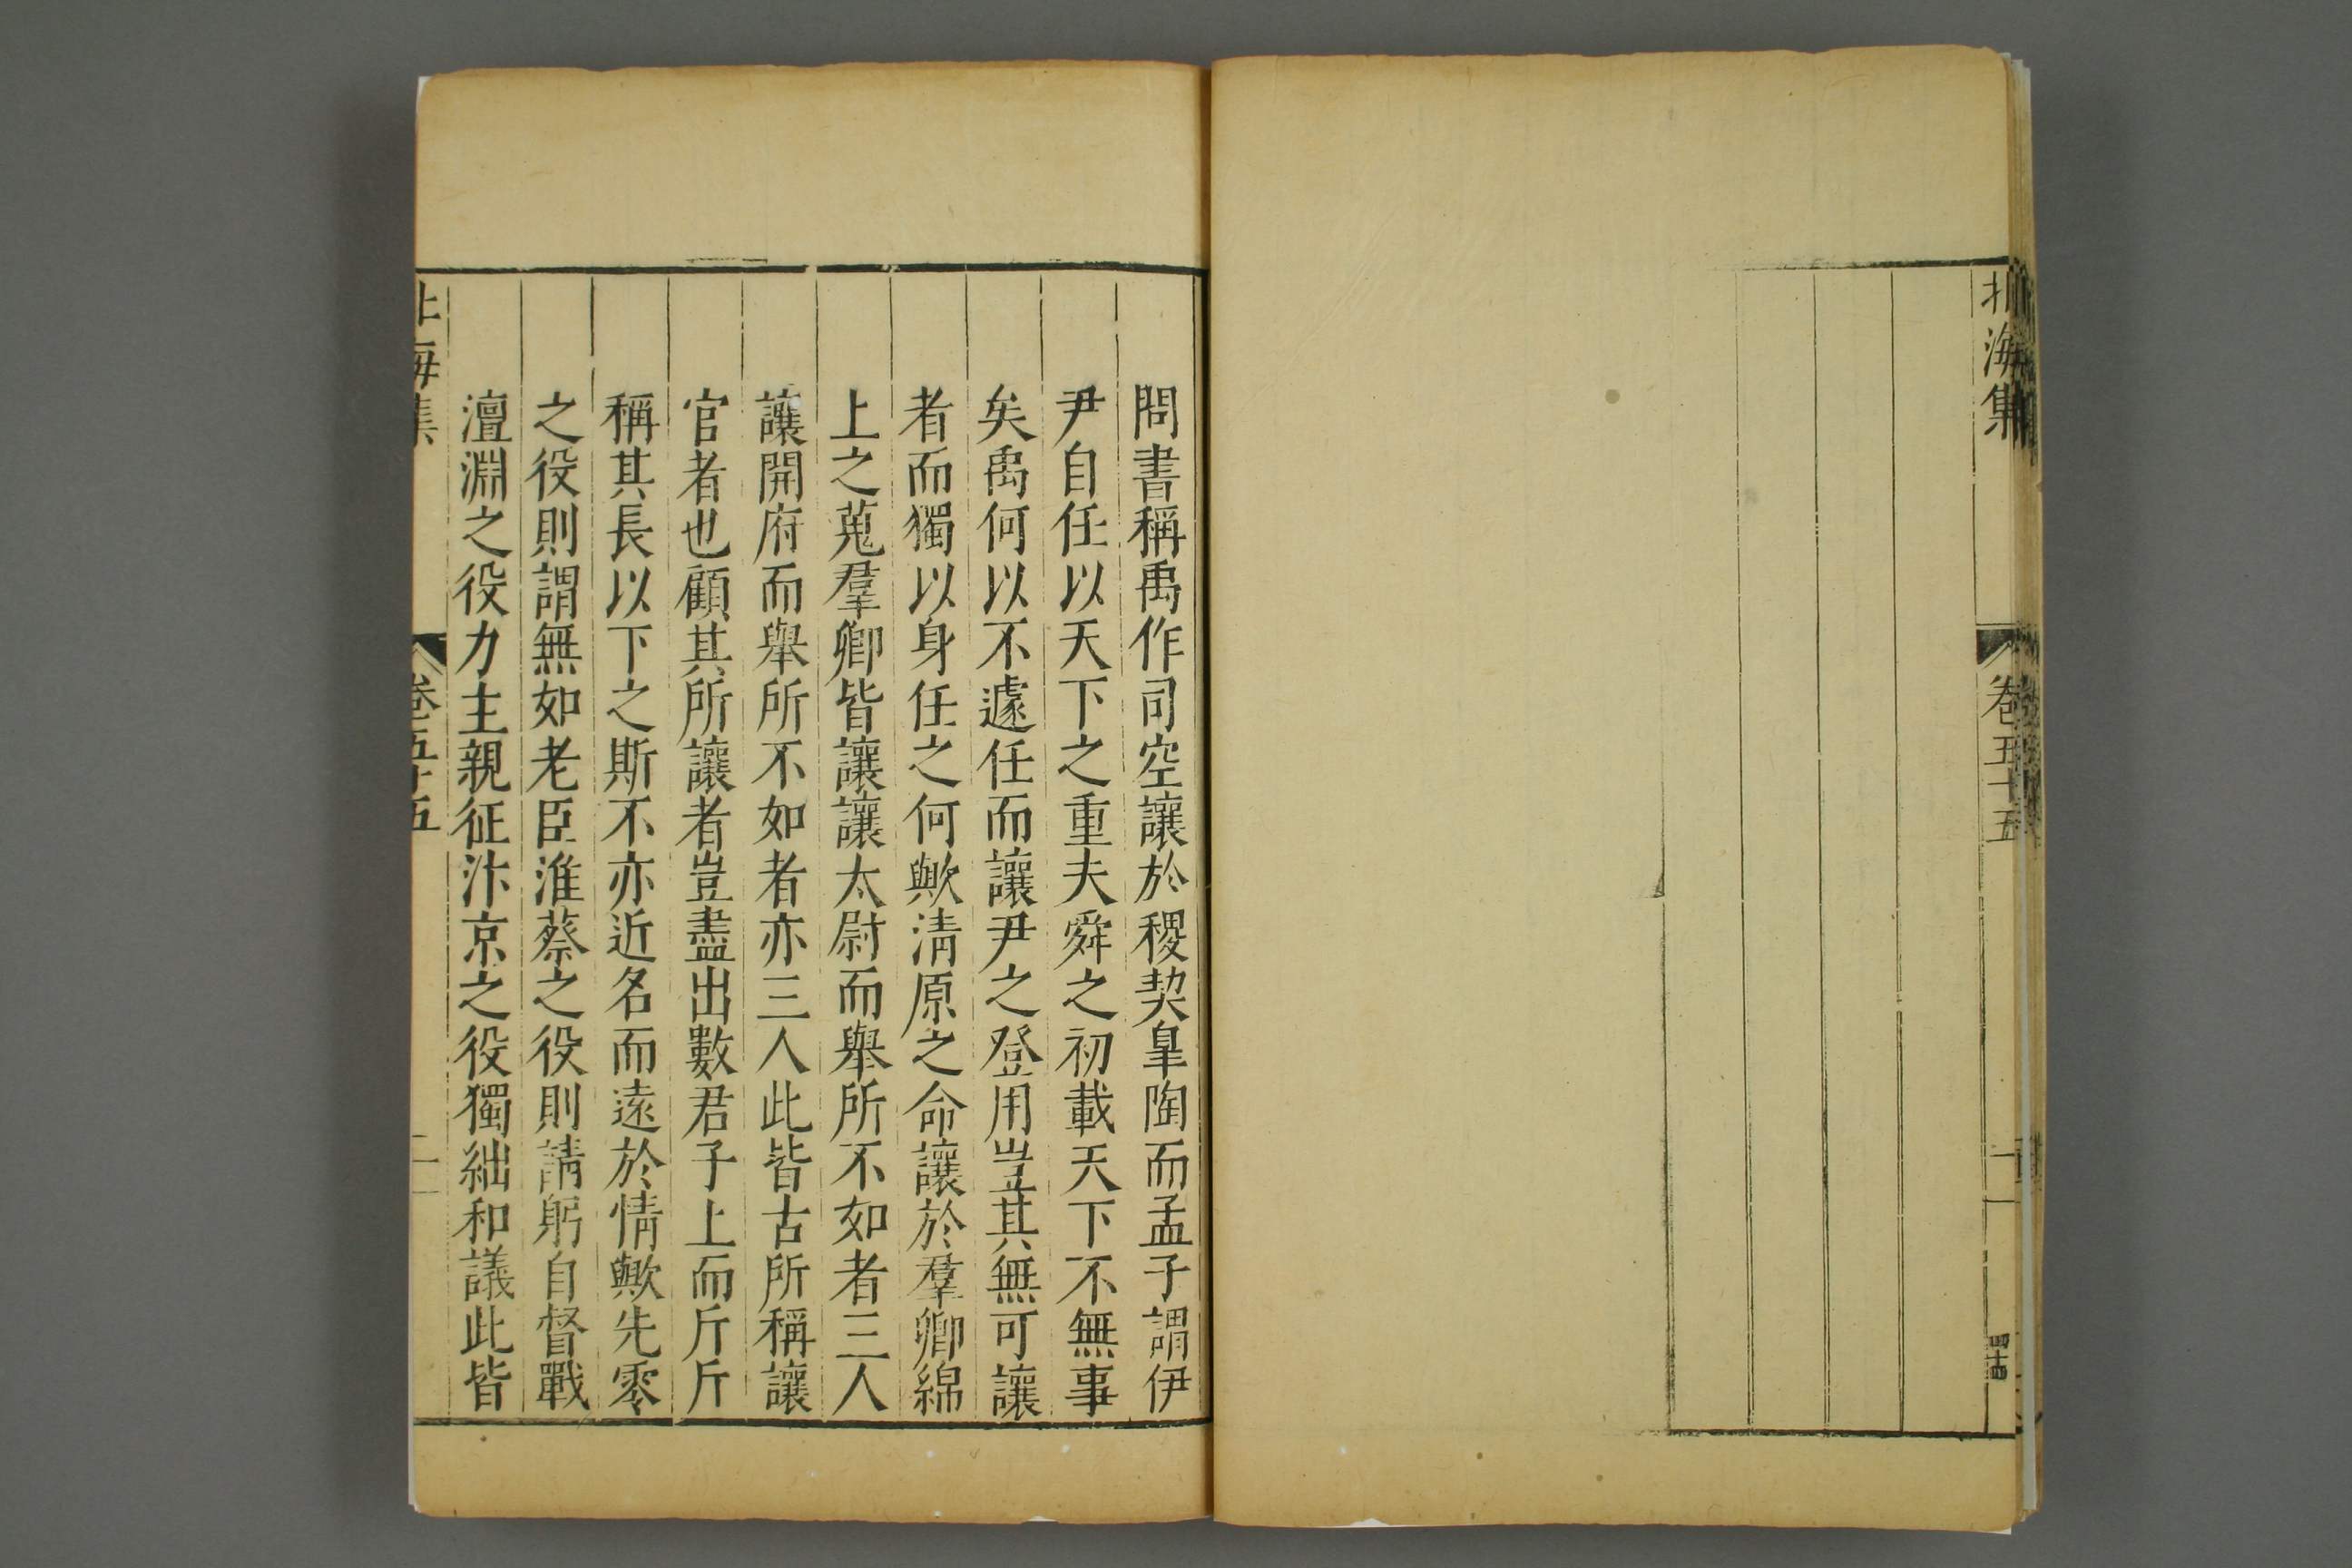 北海集
卷五十五
一
問書稱禹作司空讓於稷契皐陶而孟子謂伊
尹自任以天下之重夫舜之初載天下不無事
矣禹何以不遽任而讓尹之登用豈其無可讓
者而獨以身任之何歟清原之命讓於羣卿綿
上之蒐羣卿皆讓讓太尉而舉所不如者三人
讓開府而舉所不如者亦三人此皆古所稱讓
官者也顧其所讓者豈盡出數君子上而斤斤
稱其長以下之斯不亦近名而遠於情歟先零
之役則謂無如老臣淮蔡之役則請躬自督戰
澶淵之役力主親征汴京之役獨絀和議此皆
北海集
卷五十五
二